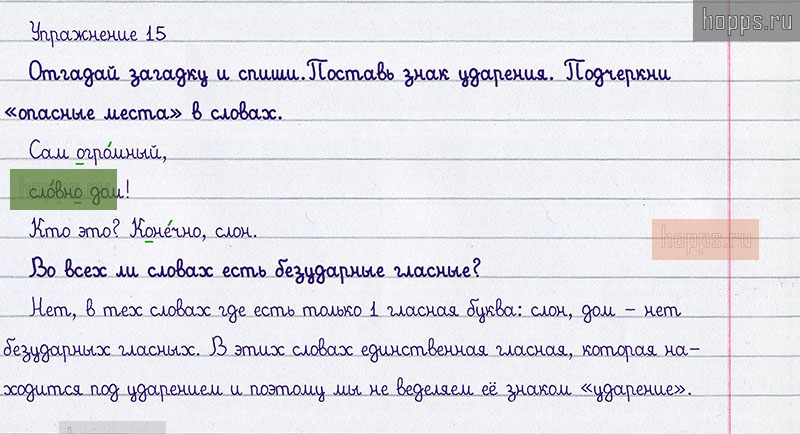 hopps.ru
Упражнение 15
Отгадай загадку и спиши.Поставь знак ударения. Подчеркни
«опасные места» в словах.
Сам огро́мный,
сло́вно дом!
Кто это? Коне́чно, слон.
hopps.ru
Во всех ли словах есть безударные гласные?
Нет, в тех словах где есть только 1 гласная буква: слон, дом – нет
безударных гласных. В этих словах единственная гласная, которая на-
ходится под ударением и поэтому мы не веделяем её знаком «ударение».